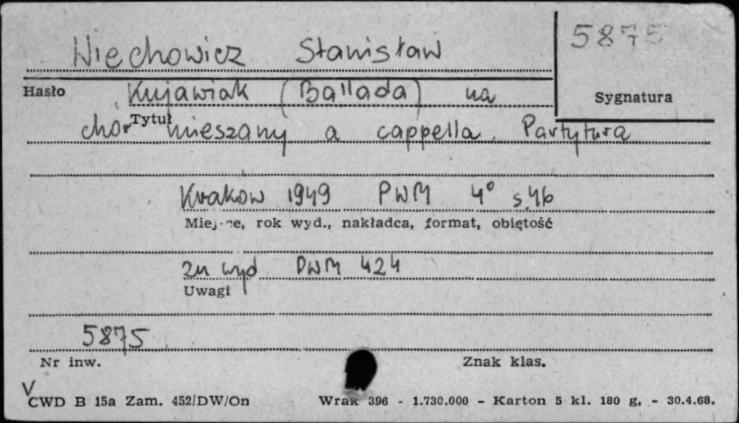 Wiechowicz Stanisław 5875
Hasło Kujawiak (Ballada) na Sygnatura
Tytuł
chór mieszany a cappella. Partytura
Kraków 1949 PWM 4° s.46
Miejsce, rok wyd., nakładca, format, objętość
zn wyd. PWM 424
Uwagi
5875
Nr inw. Znak klas.
V
CWD B 15a Zam. 452/DW/On Wrak 396 - 1.730.000 - Karton 5 kl. 180 g. - 30.4.68.